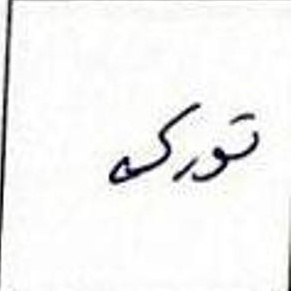 تورک